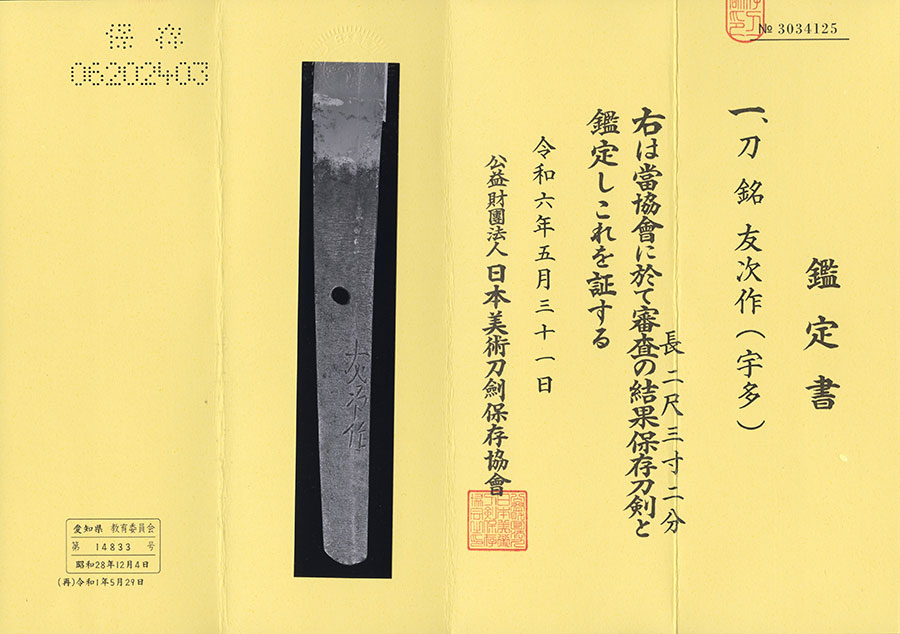 № 3034125
鑑定書
一、刀 銘 友次作(宇多)
長二尺三寸二分
右は當協會に於て審査の結果保存刀剣と
鑑定しこれを証する
令和六年五月三十一日
公益財團法人 日本美術刀劍保存協會
友次作
保存
06202403
愛知県 教育委員会
第 14833 号
昭和28年12月4日
(再)令和1年5月29日